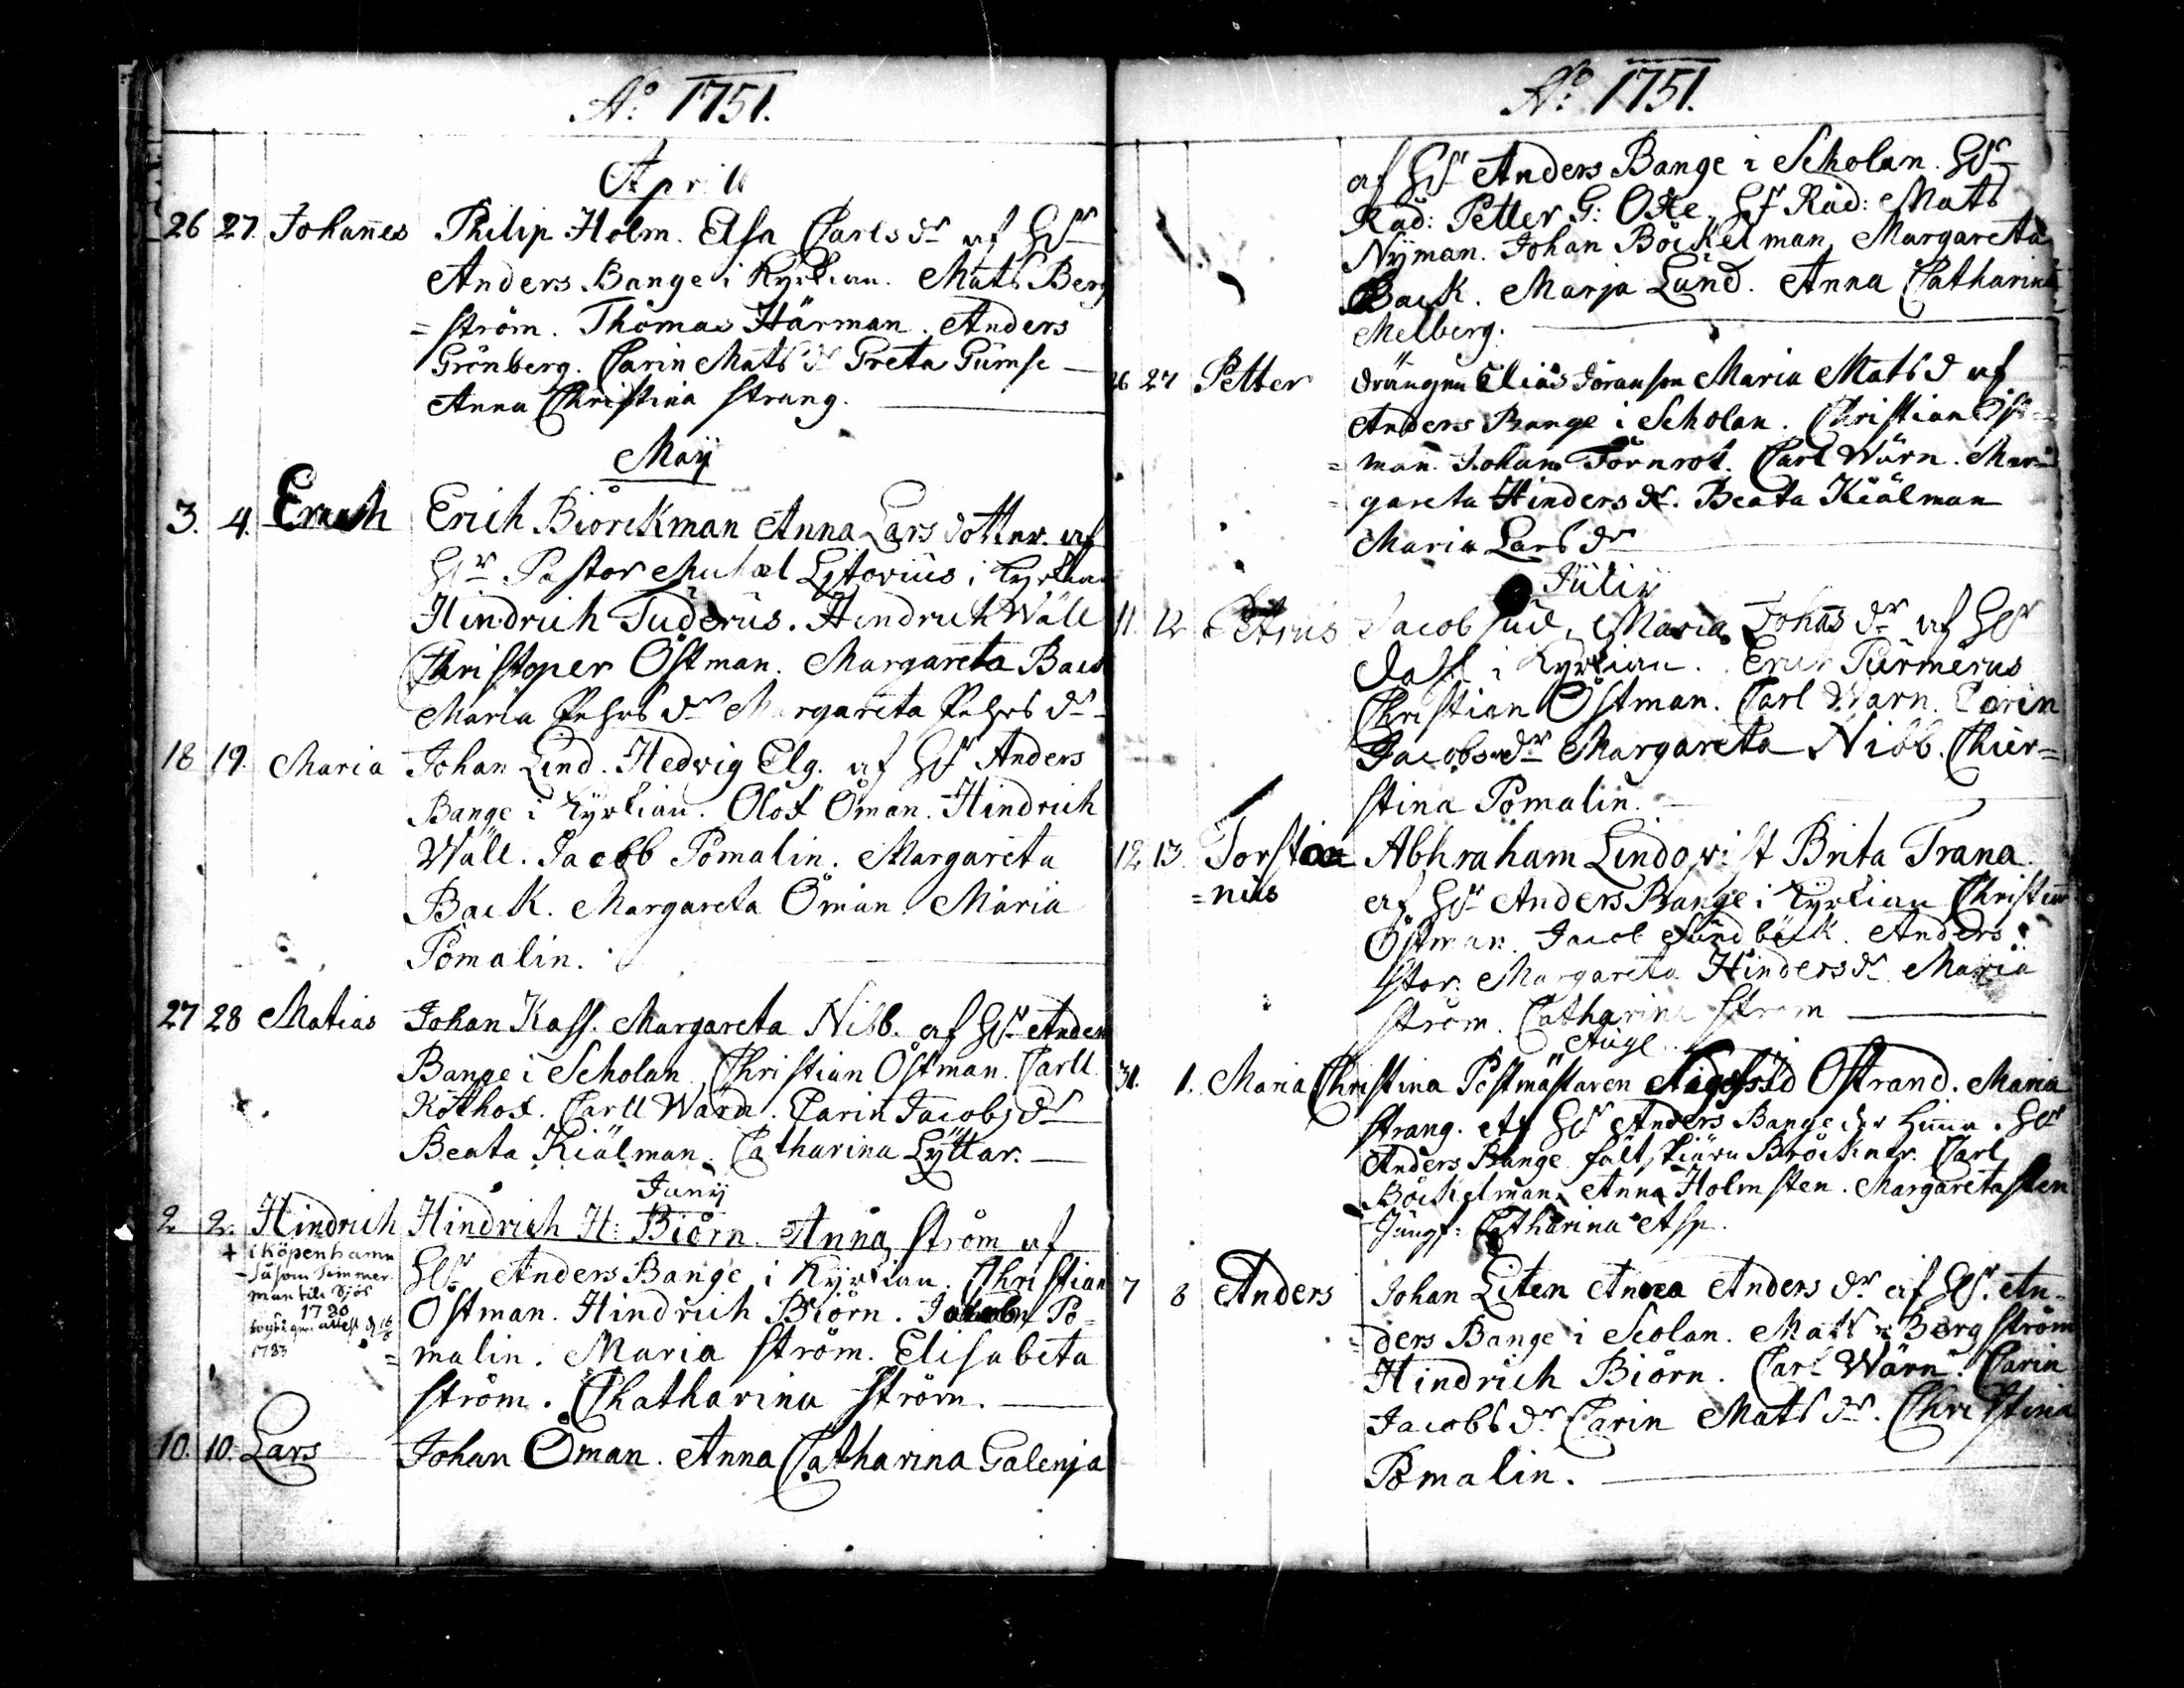 Aº 1751.
April
26 27. Johan̄es Philip Holm. Elsa Carls dr af Hr
Anders Bange i Kyrkian. Mats Berg
= ström. Thomas Härman. Anders
Grönberg. Carin Mats dr Greta Gumse
Anna Christina Strang.
Maÿ
3. 4. Erich Erich Biörckman Anna Lars dotter. af
Hr Pastor Michael Lÿtovius i Kyrkian
Hindrich Tuderus. Hindrich Wäll
Christoper Östman. Margareta Back
Maria Pehrs dr Margareta Pehrs dr
18 19. Maria Johan Lind. Hedvig Elg. af Hr Anders
Bange i Kyrkian. Olof Öman. Hindrich
Wäll. Jacob Pomalin. Margareta
Back. Margareta Öman. Maria
Pomalin.
27 28 Matias Johan Kass. Margareta Nibb. af Hr Anders
Bange i Scholan. Christian Östman. Carll
Kötthof. Carll Wärn. Carin Jacobs dr
Beata Kiälman. Catharina Lÿttar.
Junÿ
2 2. Hindrich Hindrich H: Biörn. Anna Ström af
+ i Köpenhamn
såsom Timmer
man till Sjös
1780
attest
1783
Hr Anders Bange i Kyrkian. Christian
Östman. Hindrich Biörn. Jacob Po=
= malin. Maria Ström. Elisabeta
Ström. Chatharina Ström.
10. 10. Lars Johan Öman. Anna Catharina Galenja
Aº 1751.
af Hr Anders Bange i Scholan. Hr
Råd: Petter G: Oxe, Hr Råd: Mats
Nÿman. Johan Böckelman, Margareta
Back. Marja Lund. Anna Catharina
Melberg.
26 27 Petter drängen Elias Jöranson Maria Mats d af
Anders Bange i Scholan. Christian Öst=
= man. Johan Törnrot. Carl Wärn. Mar=
= gareta Hinders dr. Beata Kiälman
Maria Lars dr
Julii
11. 12 Petrus Jacob Sud, Maria Johans dr af Hr
i Kyrkian. Erich Purmerus
Christian Östman. Carl Wärn. Carin
Jacobs dr Margareta Nibb. Chier=
stina Pomalin.
12 13. Torstan Abhraham Lindqvist Brita Trana.
= nus af Hr Anders Bange i Kyrkian Christian
Östman. Jacob Sundbäck. Anders
Stor. Margareta Hinders dr Maria
Ström. Catharina Ström
Aug.
31. 1. Maria Christina Postmästaren Sigfrid Östrand. Maria
Strang. af Hr Anders Bange der Hemma. Hr
Anders Bange fält Bröckner. Carl
Böckelman. Anna Holmsten. Margareta Sten
Jungf: Catharina Asp.
7 8 Anders Johan Liten Anna Anders dr af Hr. An=
= ders Bange i Scolan. Mats Bergström
Hindrich Biörn. Carl Wärn. Carin
Jacobs dr Carin Mats dr. Christina
Pomalin.